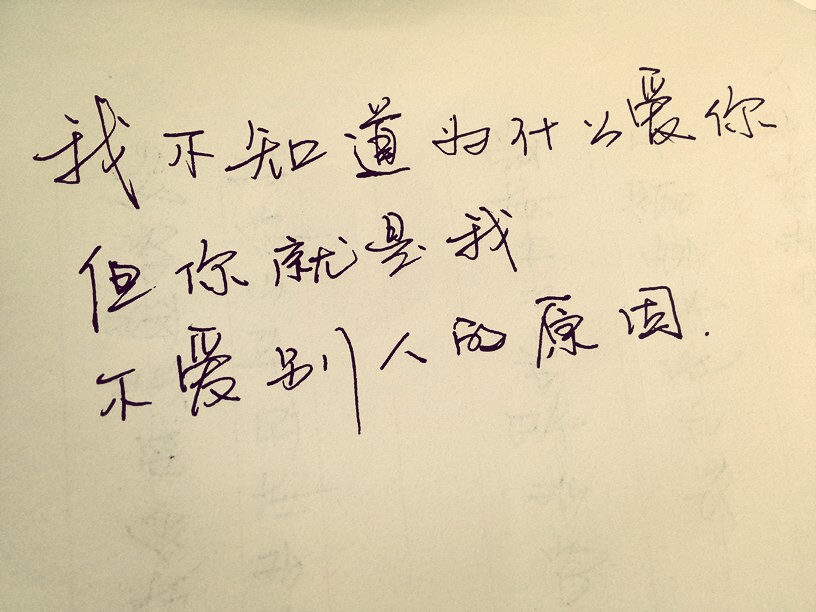 我不知道为什么爱你
但你就是我
不爱别人的原因.